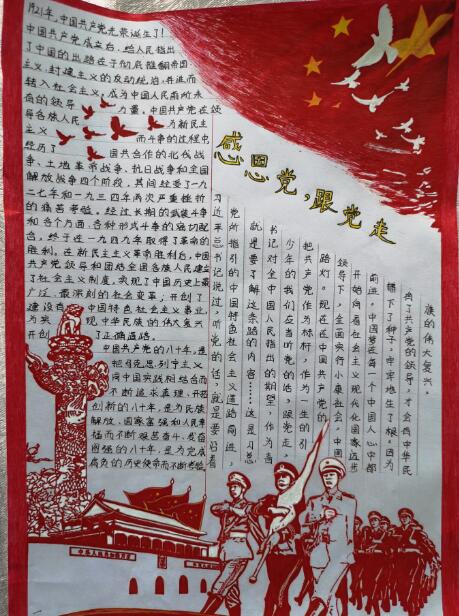 1921年,中国共产党光荣诞生了!
中国共产党成立后,给人民指出
了中国的出路在于彻底推翻帝国
主义,封建主义的反动统治,并进而
转入社会主义,成为中国人民前所未
有的领导力量。中国共产党在领
导各族人民为新民主
主义而斗争的过程中
经历了国共合作的北伐战
争、土地革命战争、抗日战争和全国
解放战争四个阶段,其间经受了一九
二七年和一九三四年两次严重挫折
的痛苦考验。经过长期的武装斗争
和各个方面,各种形式斗争的密切配
合,终于在一九四九年取得了革命的
胜利。在新民主主义革命胜利后,中国
共产党领导和团结全国各族人民建立
了社会主义制度,实现了中国历史上最
广泛、最深刻的社会变革,开创了
建设有中国特色社会主义事业,
为实现中华民族的伟大复兴
开创了正确道路。
中国共产党的八十年,是
把马克思列宁主义
同中国实践相结合而
不断追求真理、开拓
创新的八十年,是为民族
解放、国家富强和人民幸
福而不断艰苦奋斗、发奋
图强的八十年,是为完成
肩负的历史使命而不断考验
感恩党,跟党走
族的伟大复兴。
有了共产党的领导,才会为中华民
播下了种子,牢牢地生了根。因为
前进,中国梦在每一个中国人心中都
开始向着社会主义现代化国家迈步
领导下,全面实行小康社会,中国
路灯。现在在中国共产党的
把共产党作为标杆,作为一生的引
少年的我们应当听党的话,跟党走,
书记对全中国人民指出的期望,作为青
就是要了解这条路的内容……这是习总
党所指引的中国特色社会主义道路前进,
习近平总书记说过,听党的话,就是要沿着